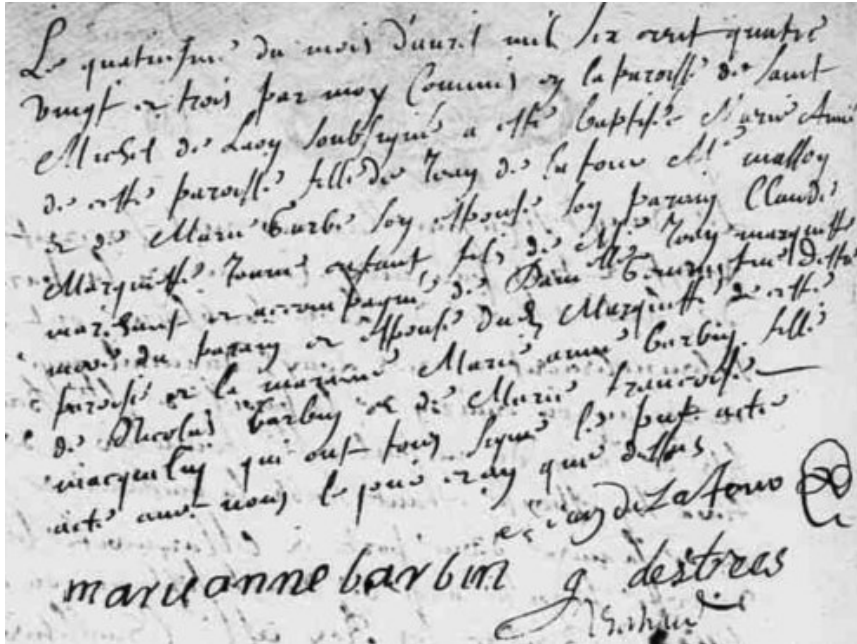 Le quatriesme du mois d'auril mil six cent quatre
vingt et trois par moy Commis en la paroisse de saint
Michel de Laon soubsigné a esté baptisée Marie Anne
de cette paroisse fille de Jean de la tour Me masson
et de Marie barbin son espouse son parain Claude
Marquette jeune enfant fils de Me Jean marquette
marchant et accompagné de Damlle destre
mere du parain et espouse dud Marquette de cette
paroisse et la maraine Marie anne barbin fille
de Nicolas barbin et de Marie francoise
macquelin qui ont tous signé le pnt acte
acte auec nous le jour et an que dessus
Jean De La Tour
marie anne barbin g destres